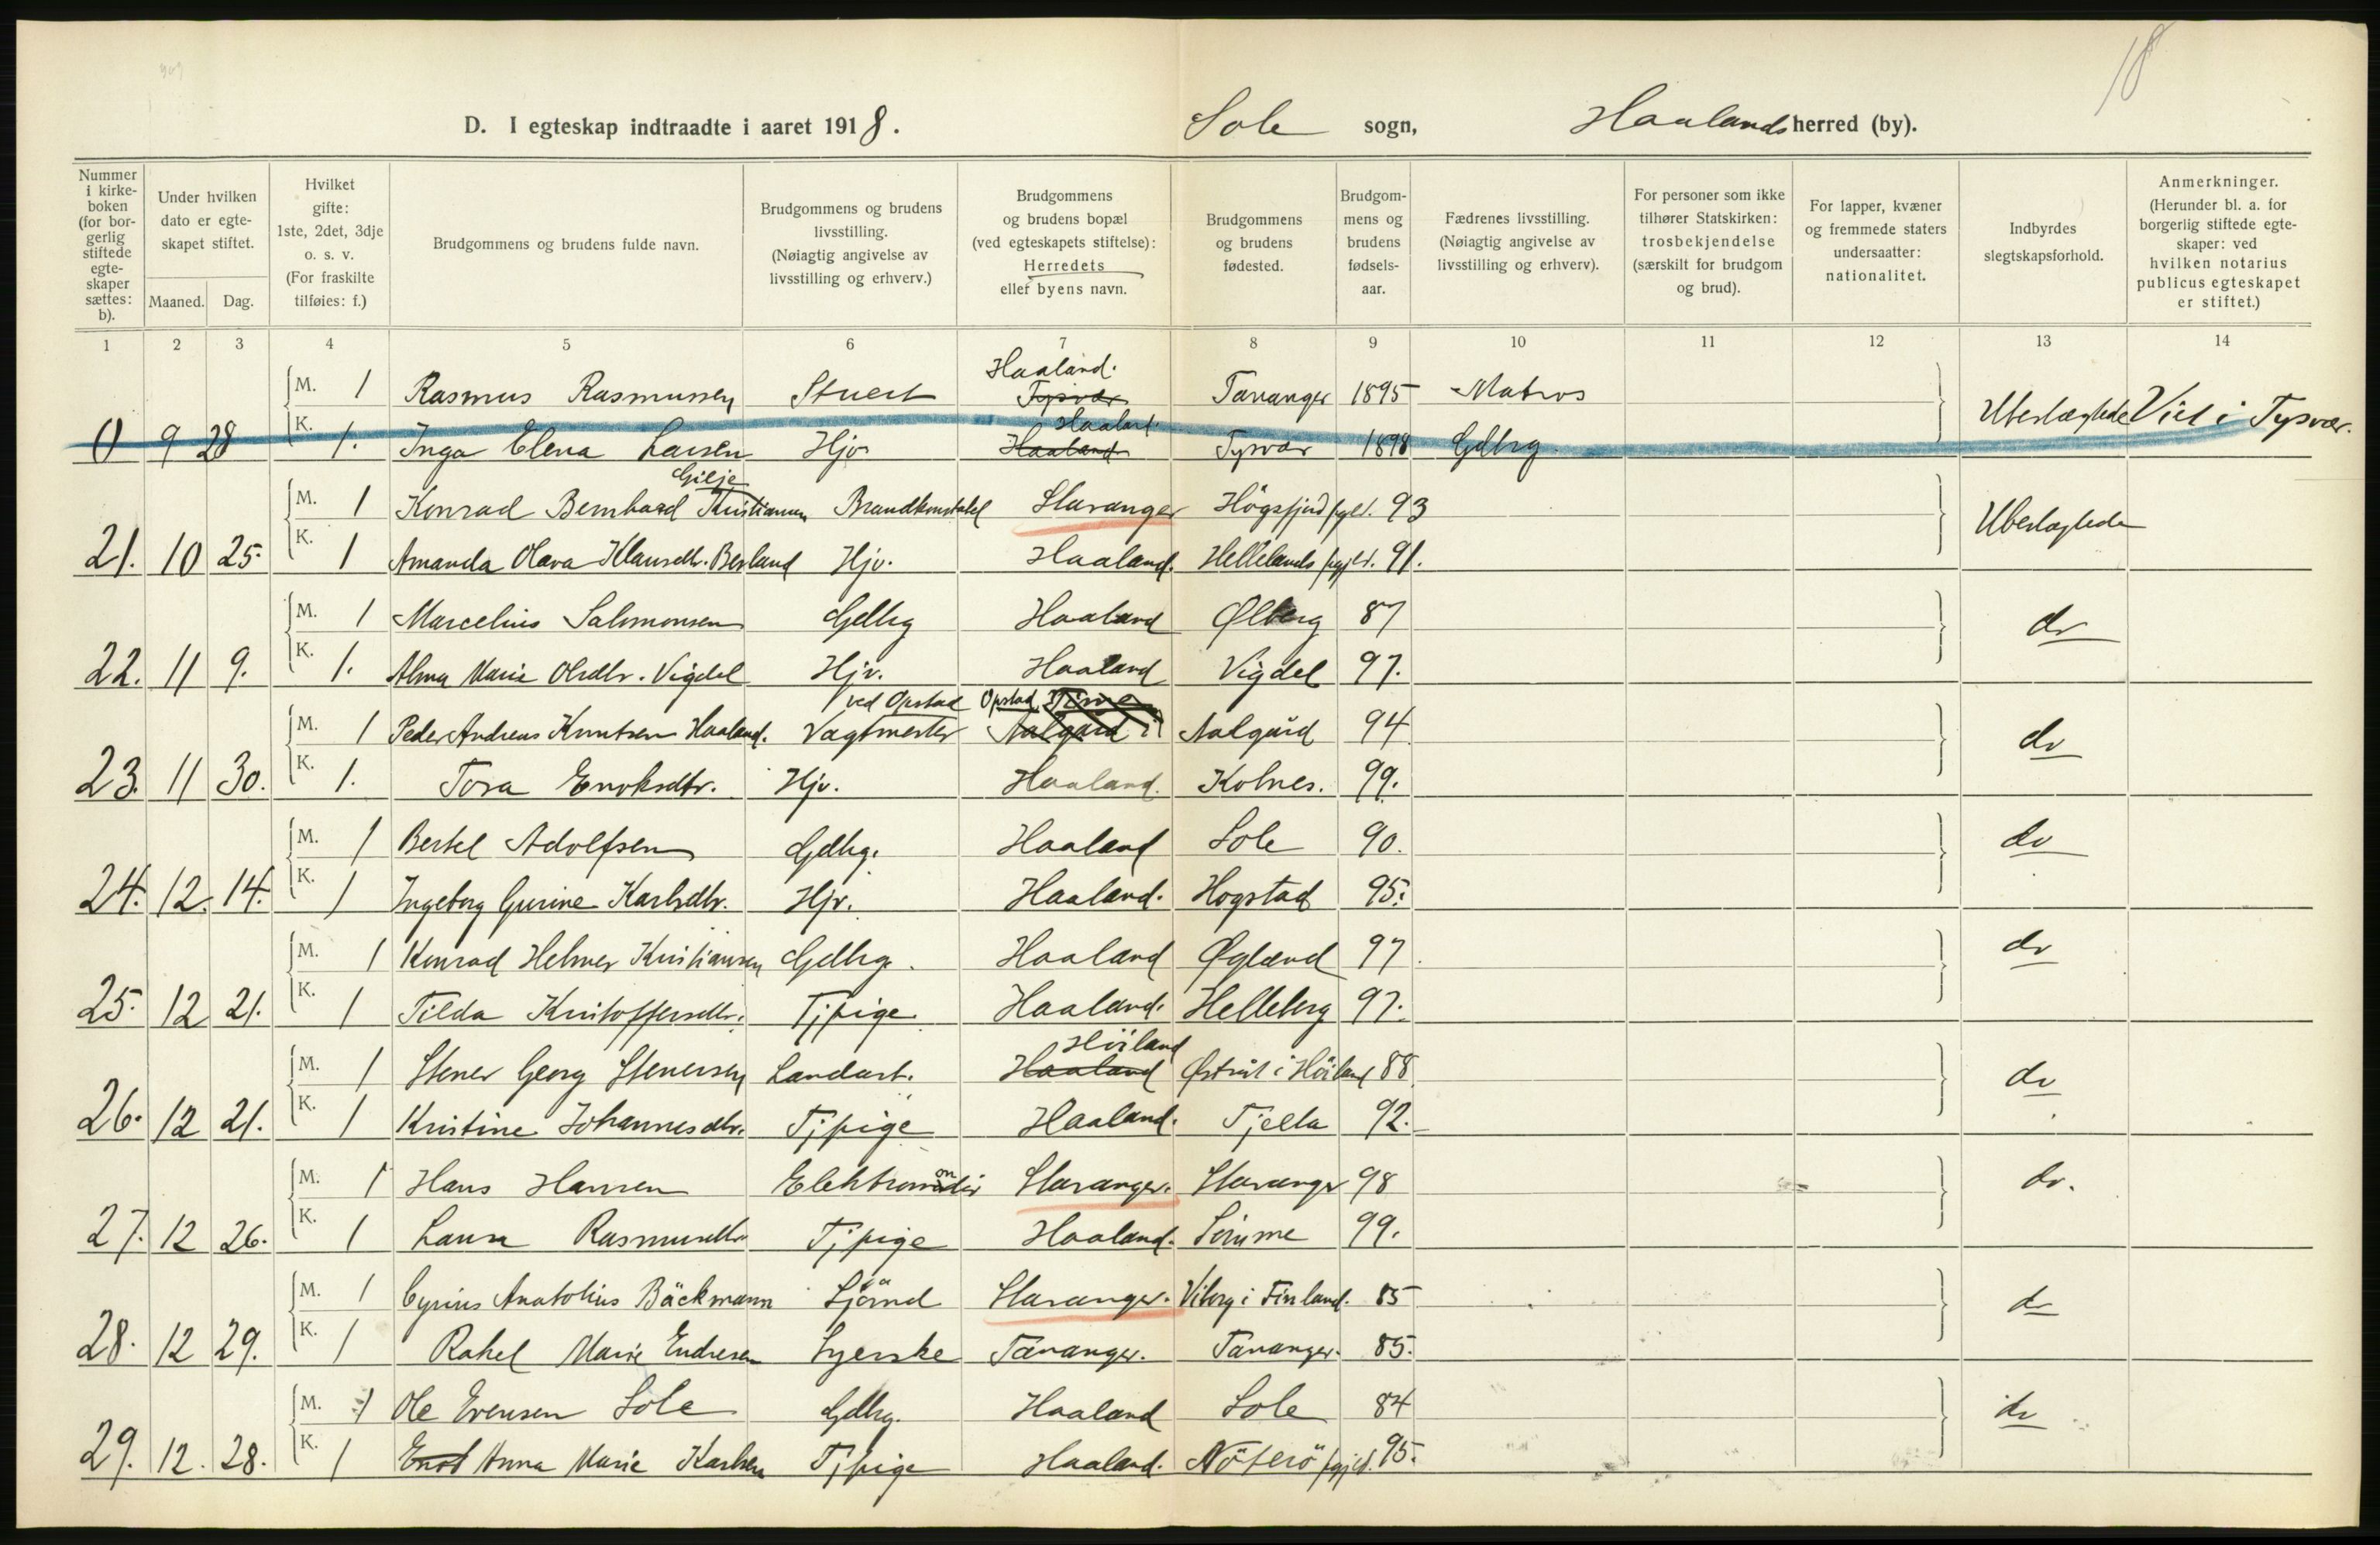 18
D. I egteskap indtraadte i aaret 1918. Sole sogn, Haalands herred (by).
Nummer i kirkeboken (for borgerlig stiftede egteskaper sættes: b).
Under hvilken dato er egteskapet stiftet.
Maaned. Dag.
Hvilket gifte: 1ste, 2det, 3dje o. s. v. (For fraskilte tilføies: f.)
Brudgommens og brudens fulde navn.
Brudgommens og brudens livsstilling. (Nøiagtig angivelse av livsstilling og erhverv.)
Brudgommens og brudens bopæl (ved egteskapets stiftelse): Herredets eller byens navn.
Brudgommens og brudens fødested.
Brudgommens og brudens fødselsaar.
Fædrenes livsstilling. (Nøiagtig angivelse av livsstilling og erhverv).
For personer som ikke tilhører Statskirken: trosbekjendelse (særskilt for brudgom og brud).
For lapper, kvæner og fremmede staters undersaatter: nationalitet.
Indbyrdes slegtskapsforhold.
Anmerkninger. (Herunder bl. a. for borgerlig stiftede egteskaper: ved hvilken notarius publicus egteskapet er stiftet.)
1 2 3 4 5 6 7 8 9 10 11 12 13 14
Haaland.
M. 1 Rasmus Rasmussen Stuert Tysvær Tananger 1895 Matros Ubeslægtede Viet i Tysvær.
Haaland
() 9 28 K. 1. Inga Elena Larsen Hjv Haaland Tysvær 1898 Gdbrg
Gilje
M. 1 Konrad Bernhard Kristiansen Brandkonstabel Stavanger Högsfjord pgld. 93 Ubeslagtede
21. 10 25. K. 1 Amanda Olava Klausdtr. Berland Hjv. Haaland. Hellelands pgjld. 91.
M. 1 Marcelius Salomonsen Gdbrg Haaland Ølberg 87 do
22. 11 9. K. 1. Alma Marie Olsdtr. Vigdel Hjv. Haaland Vigdel 97.
ved Opstad Opstad Time
M. 1 Peder Andreas Knutsen Haaland. Vagtmester Aalgård i Aalgård 94 do
23. 11 30. K. 1. Tora Enoksdtr. Hjv. Haaland. Kolnes. 99.
M. 1 Bertel Adolfsen Gdbrg. Haaland Sole 90. do
24. 12. 14. K. 1 Ingeborg Gurine Karlsdtr. Hjv. Haaland. Hogstad 95.
M. 1 Konrad Helmer Kristiansen Gdbrg. Haaland Øgland 97. do
25. 12 21. K. 1 Tilda Kristoffersdtr. Tjpige Haaland. Helleberg 97.
Höiland
M. 1 Stener Georg Stenersen Landarb. Haaland Østråt i Höiland 88 do
26. 12 21. K. 1 Kristine Johannesdtr. Tjpige Haaland. Tjelta 92.
on
M. 1 Hans Hansen Elektromontör Stavanger. Stavanger 98 do.
27. 12 26. K. 1 Laura Rasmusdtr Tjpige Haaland. Sömme 99.
M. 1 Cyrius Anatolius Bäckmann Sjömd Stavanger. Viborg i Finland. 85 do
28. 12 29. K. 1 Rakel Marie Endresen Syerske Tananger. Tananger. 85.
M. 1 Ole Evensen Sole Gdbrg. Haaland Sole 84 do
29. 12. 28. K. 1 Anna Marie Karlsen Tjpige Haaland. Nöterö pgjld. 95.